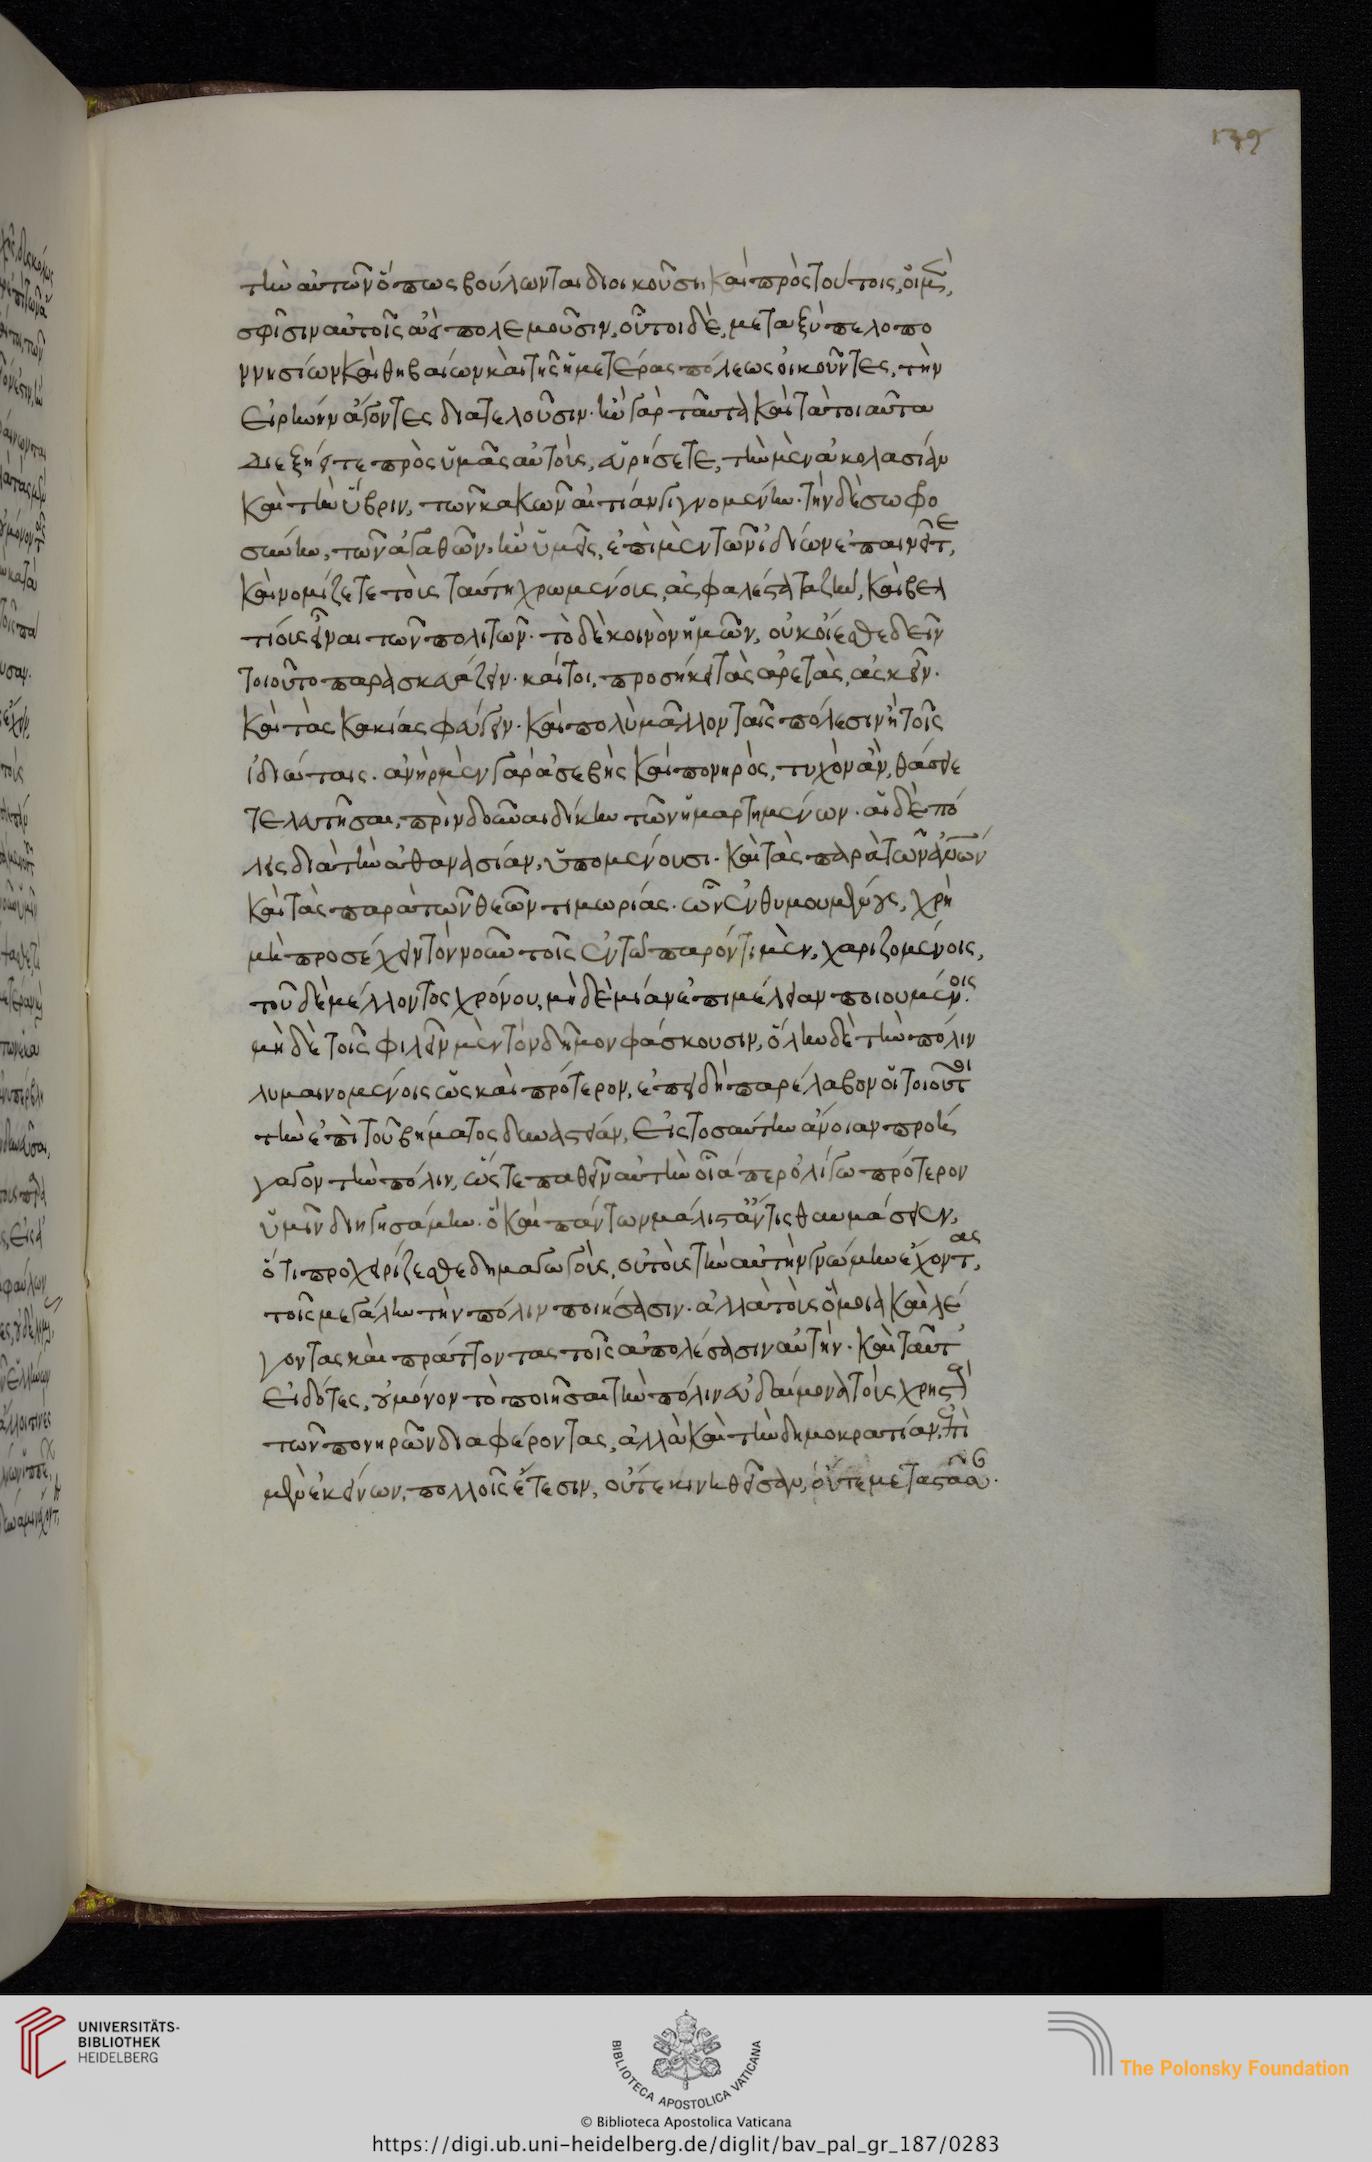 139
τὴν αὑτῶν ὅπως βούλωνται διοικοῦσι. καὶ πρὸς τούτοις, οἱ μὲν,
σφίσιν αὐτοῖς ἀεὶ πολεμοῦσιν, οὗτοι δὲ, μεταξὺ πελοπο
ννησίων καὶ θηβαίων καὶ τῆς ἡμετέρας πόλεως οἰκοῦντες, τὴν
εἰρήνην ἄγοντες διατελοῦσιν. ἢν γὰρ ταῦτα καὶ τὰ τοιαῦτα
διεξίητε πρὸς ὑμᾶς αὐτοὺς, εὑρήσετε, τὴν μὲν ἀκολασίαν
καὶ τὴν ὕβριν, τῶν κακῶν αἰτίαν γιγνομένην. τὴν δὲ σωφρο
σύνην, τῶν ἀγαθῶν. ἣν ὑμεῖς, ἐπὶ μὲν τῶν ἰδίων ἐπαινεῖτε,
καὶ νομίζετε τοὺς ταύτῃ χρωμένους, ἀσφαλέστατα ζῆν, καὶ βελ
τίους εἶναι τῶν πολιτῶν. τὸ δὲ κοινὸν ἡμῶν, οὐκ οἴεσθε δεῖν
τοιοῦτο παρασκευάζειν. καίτοι, προσήκει τὰς ἀρετὰς, ἀσκεῖν.
καὶ τὰς κακίας φεύγειν. καὶ πολὺ μᾶλλον ταῖς πόλεσιν ἢ τοῖς
ἰδιώταις. ἀνὴρ μὲν γὰρ ἀσεβὴς καὶ πονηρὸς, τυχὸν ἂν, φθάσειε
τελευτήσας, πρὶν δοῦναι δίκην τῶν ἡμαρτημένων. αἱ δὲ πό
λεις διὰ τὴν ἀθανασίαν, ὑπομένουσι. καὶ τὰς παρὰ τῶν ἀνθρώπων
καὶ τὰς παρὰ τῶν θεῶν τιμωρίας. ὧν ἐνθυμουμένους, χρὴ
μὴ προσέχειν τὸν νοῦν τοῖς ἐν τῷ παρόντι μὲν, χαριζομένοις,
τοῦ δὲ μέλλοντος χρόνου, μηδὲ μίαν ἐπιμέλειαν ποιουμένοις.
μὴ δὲ τοῖς φιλεῖν μὲν τὸν δῆμον φάσκουσιν, ὅλην δὲ τὴν πόλιν
λυμαινομένοις ὡς καὶ πρότερον, ἐπειδὴ παρέλαβον οἱ τοιοῦτοι
τὴν ἐπὶ τοῦ βήματος δυναστείαν, εἰς τοσαύτην ἄνοιαν προή
γαγον τὴν πόλιν, ὥστε παθεῖν αὐτὴν οἷά περ ὀλίγω πρότερον
ὑμῖν διηγησάμην. ὃ καὶ πάντων μάλιστ' ἄν τις θαυμάσειεν,
ὅτι προχειρίζεσθε δημαγωγοὺς, οὐ τοὺς τὴν αὐτὴν γνώμην ἔχοντας,
τοῖς μεγάλην τὴν πόλιν ποιήσασιν. ἀλλὰ τοὺς ὅμοια καὶ λέ
γοντας καὶ πράττοντας τοῖς ἀπολέσασιν αὐτήν. καὶ ταῦτ'
εἰδότες, οὐ μόνον τὸ ποιῆσαι τὴν πόλιν εὐδαίμονα τοὺς χρηστοὺς
τῶν πονηρῶν διαφέροντας, ἀλλὰ καὶ τὴν δημοκρατίαν, ἐπὶ
μὲν ἐκείνων, πολλοῖς ἔτεσιν, οὔτε κινηθεῖσαν, οὔτε μεταστᾶσαν.
UNIVERSITÄTS-
BIBLIOTHEK
HEIDELBERG
BIBLIOTECA APOSTOLICA VATICANA
The Polonsky Foundation
© Biblioteca Apostolica Vaticana
https://digi.ub.uni-heidelberg.de/diglit/bav_pal_gr_187/0283